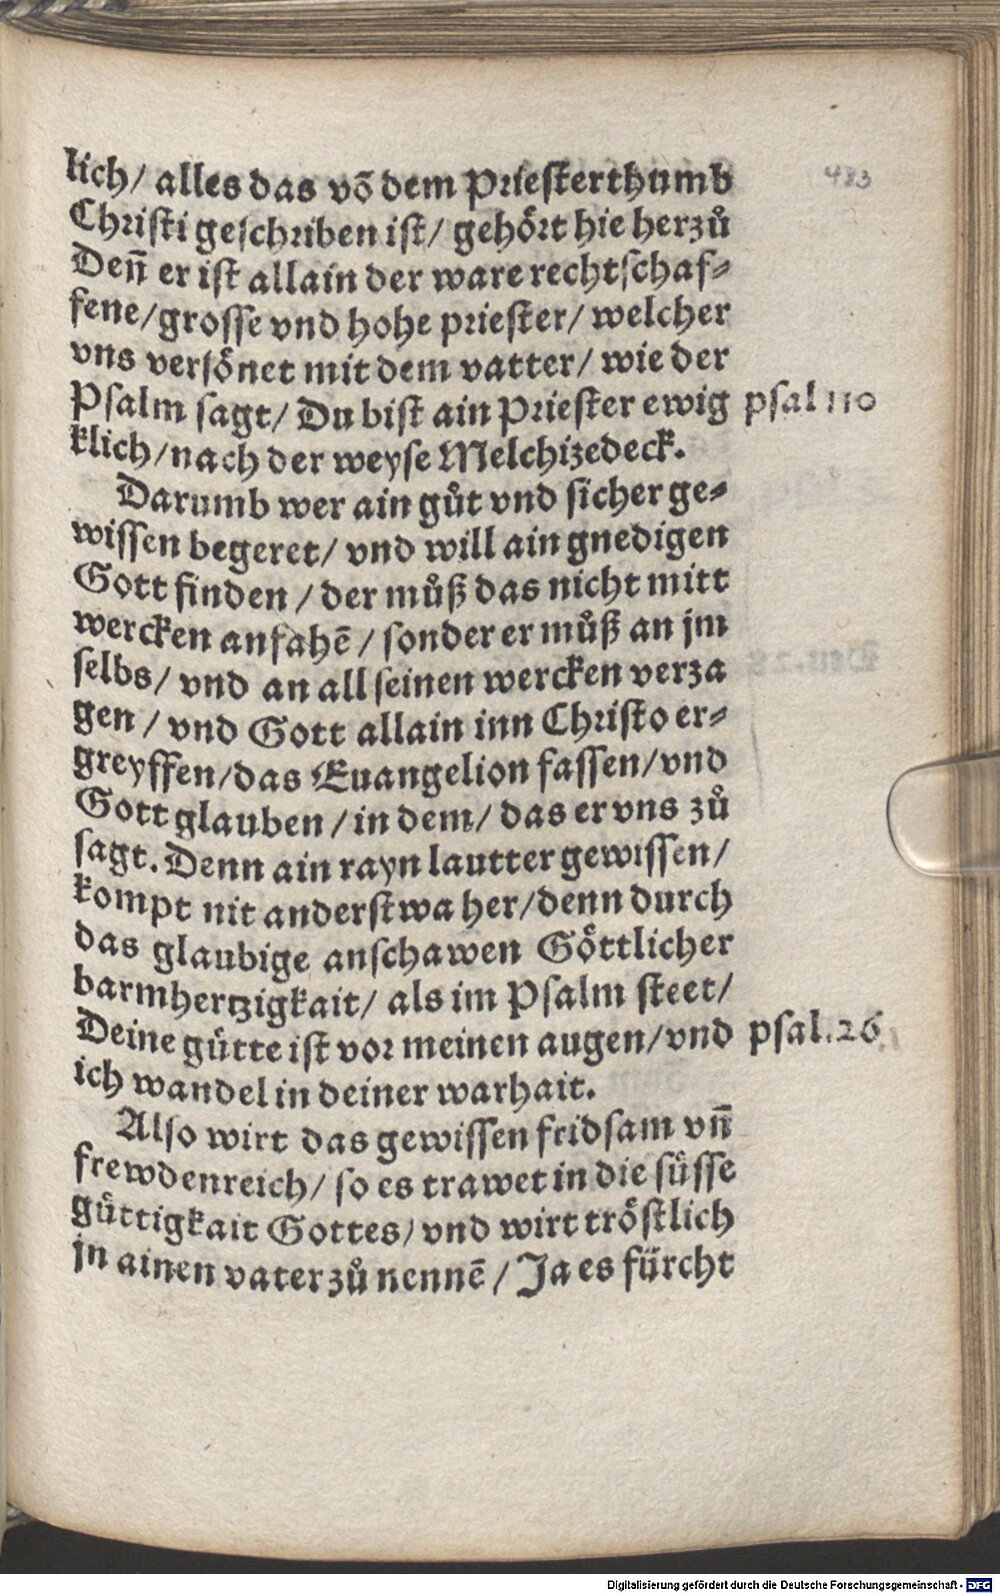 483
lich/ alles das vō dem Priesterthumb
Christi geschriben ist/ gehört hie herzů
Deñ er ist allain der ware rechtschaf⸗
fene/grosse vnd hohe priester/ welcher
vns versönet mit dem vatter/ wie der
Psalm sagt/ Du bist ain Priester ewig psal 110
klich/nach der weyse Melchizedeck.
Darumb wer ain gůt vnd sicher ge⸗
wissen begeret/ vnd will ain gnedigen
Gott finden / der můß das nicht mitt
wercken anfahē / sonder er můß an jm
selbs/ vnd an all seinen wercken verza
gen / vnd Gott allain inn Christo er⸗
greyffen/das Euangelion fassen/vnd
Gott glauben / in dem/ das er vns zů
sagt. Denn ain rayn lautter gewissen/
kompt nit anderstwa her/denn durch
das glaubige anschawen Göttlicher
barmhertzigkait/ als im Psalm steet/
Deine gütte ist vor meinen augen/vnd psal.26
ich wandel in deiner warhait.
Also wirt das gewissen fridsam vñ
frewdenreich/ so es trawet in die süsse
güttigkait Gottes/ vnd wirt tröstlich
jn ainen vater zů nennē / Ja es fürcht
Digitalisierung gefördert durch die Deutsche Forschungsgemeinschaft - DFG